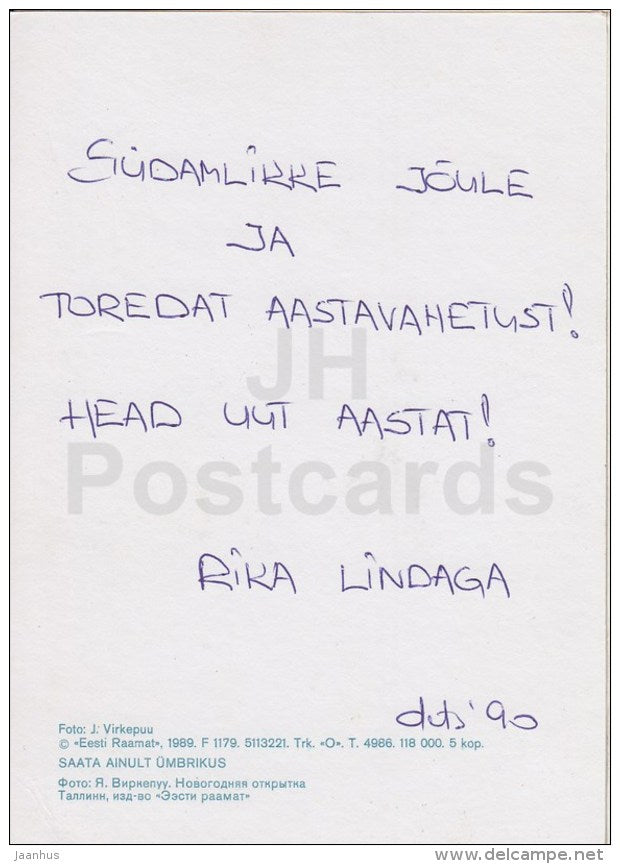 SÜDAMLIKKE JÕULE
JA
TOREDAT AASTAVAHETUST!
HEAD UUT AASTAT!
RIKA LINDAGA
dets '90
JH
Postcards
Foto: J. Virkepuu
© «Eesti Raamat», 1989. F 1179. 5113221. Trk. «O». T. 4986. 118 000. 5 kop.
SAATA AINULT ÜMBRIKUS
Фото: Я. Виркепуу. Новогодняя открытка
Таллинн, изд-во «Ээсти раамат»
jaanhus
www.delcampe.net